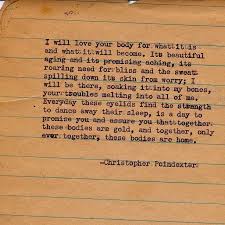 I will love your body for what it is
and what it will become. Its beautiful
aging and its promising aching, its
roaring need for bliss and the sweat
spilling down its skin from worry; I
will be there, soaking it into my bones,
your troubles melting into all of me.
Everyday these eyelids find the strength
to dance away their sleep, is a day to
promise you and assure you that together
these bodies are gold, and together, only
ever together, these bodies are home.
-Christopher Poindexter